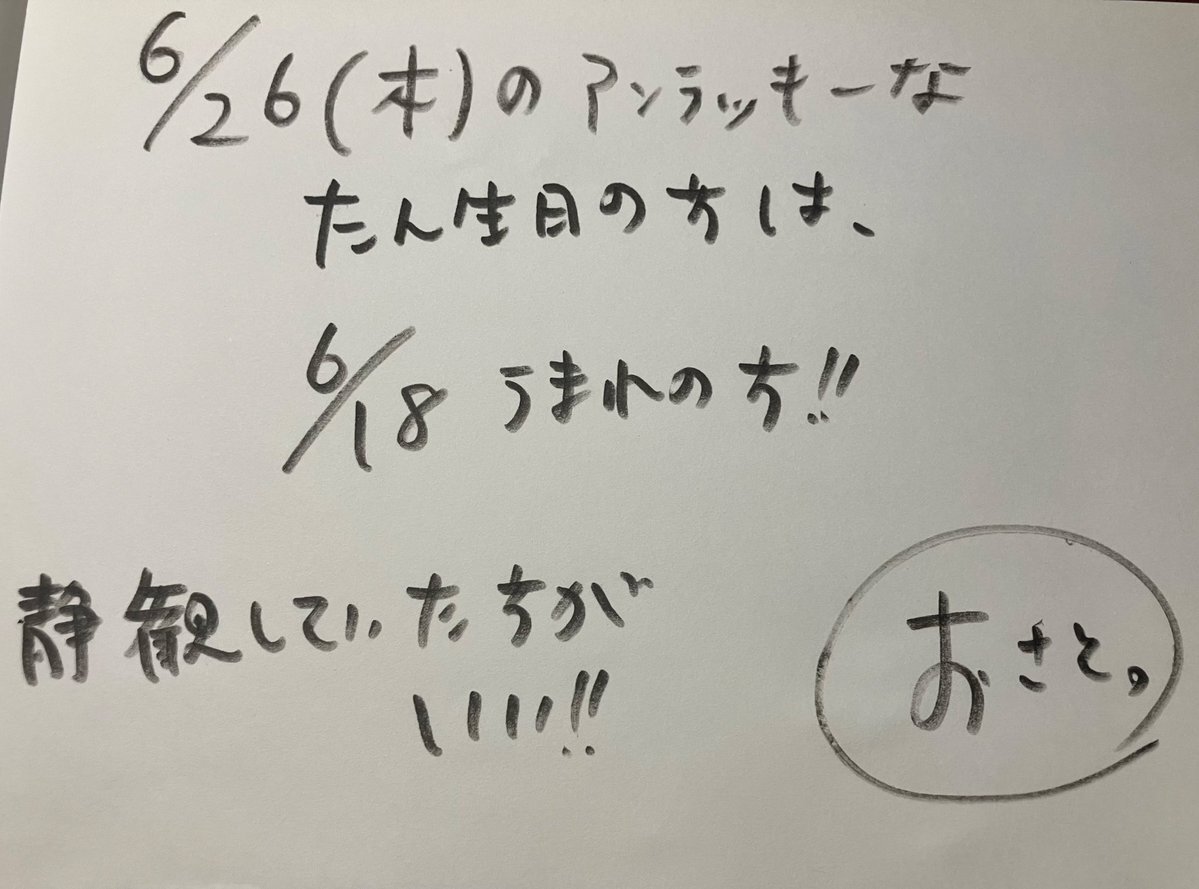 6/26(木)のアンラッキーな
たん生日の方は、
6/18 うまれの方!!
静観していたちが
いい!!
おさと。